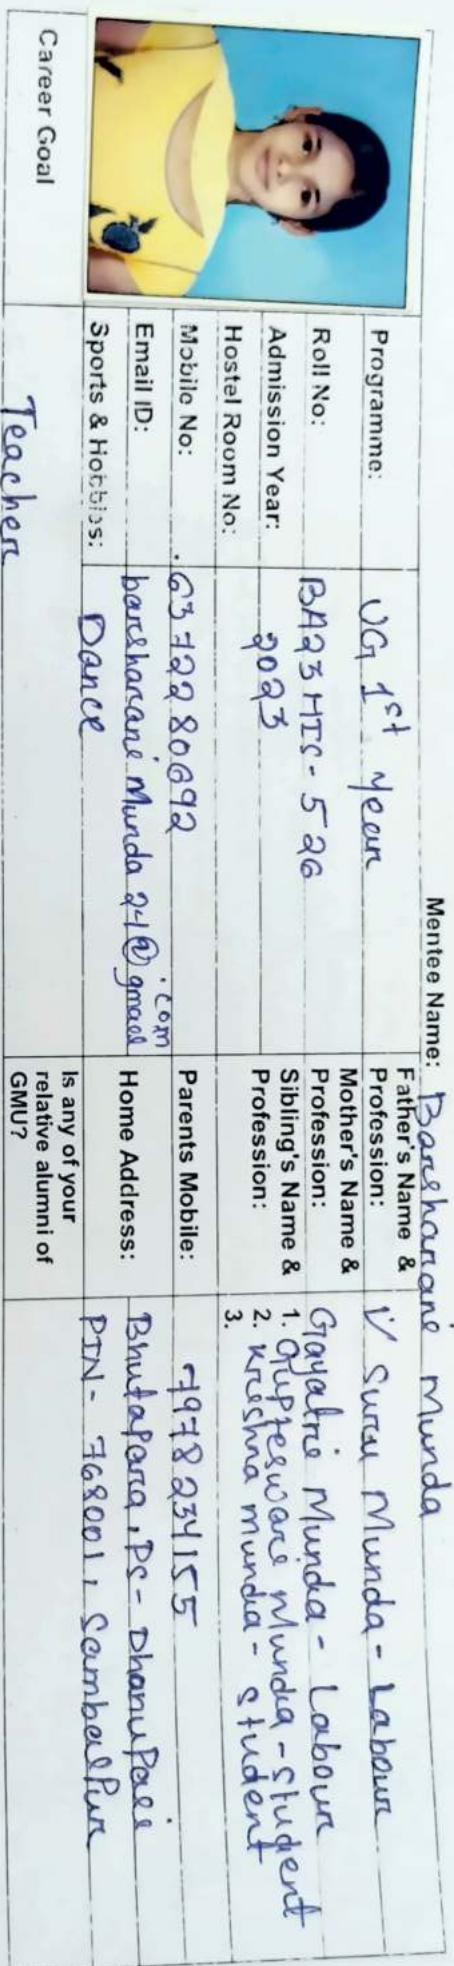 Mentee Name: Barsharani Munda
Programme: UG 1st Year
Father's Name & Profession: Suru Munda - Labour
Roll No: BA23HIS-526
Mother's Name & Profession: Gayatri Munda - Labour
Admission Year: 2023
Sibling's Name & Profession:
1. Gupteswari Munda - Student
2. Krishna Munda - Student
3.
Hostel Room No:
Mobile No: 6372280692
Parents Mobile: 7978234155
Email ID: barsharani Munda 24@gmail.com
Home Address: Bhutapara, PS- Dhanupali
PIN- 768001, Sambalpur
Sports & Hobbies: Dance
Is any of your relative alumni of GMU?
Career Goal
Teacher